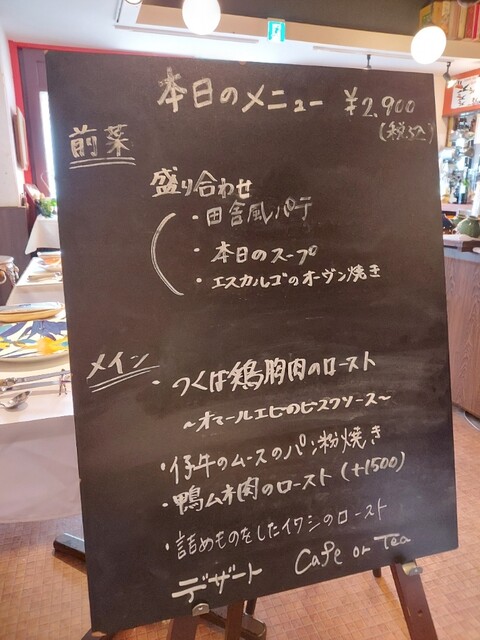 本日のメニュー ¥2,900
(税込)
前菜
盛り合わせ
・田舎風パテ
・本日のスープ
・エスカルゴのオーヴン焼き
メイン
・つくば鶏胸肉のロースト
〜オマールエビのビスクソース〜
・仔牛のムースのパン粉焼き
・鴨ムネ肉のロースト (+1500)
・詰めものをしたイワシのロースト
デザート Cafe or Tea